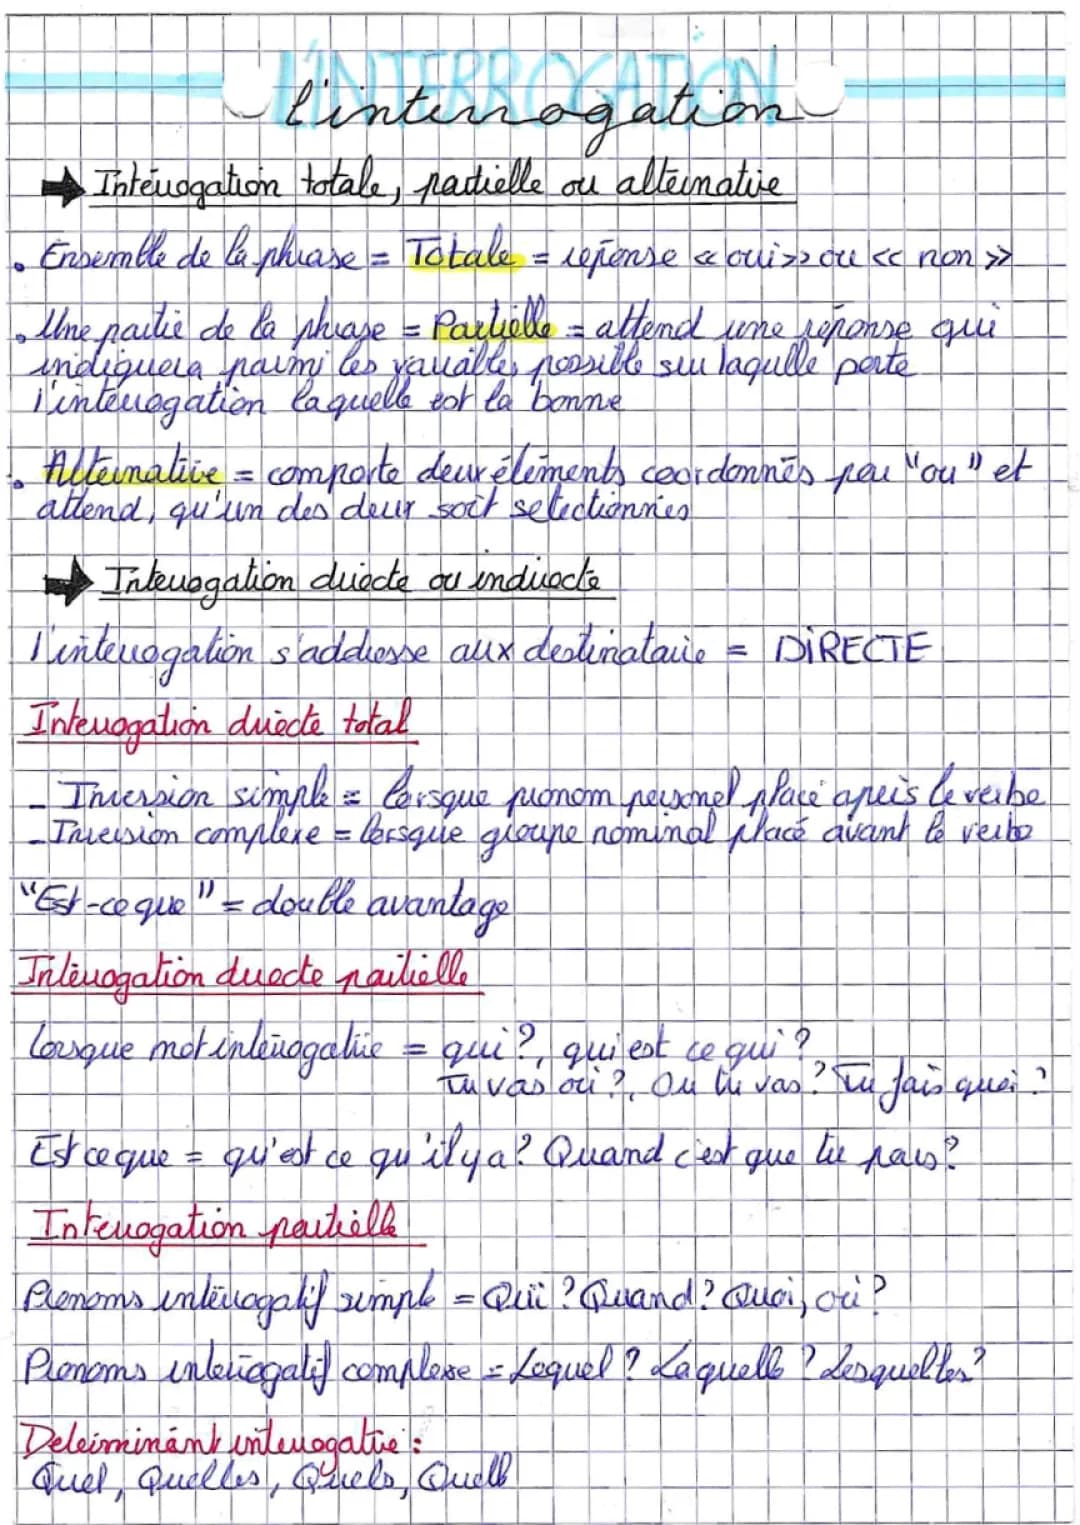 L'INTERROGATION
l'interrogation
Interrogation totale, partielle ou alternative
. Ensemble de la phrase = Totale = réponse « oui » ou « non »
. Une partie de la phrase = Partielle = attend une réponse qui
indiquera parmi les variables possible sur laquelle porte
l'interrogation laquelle est la bonne
. Alternative = comporte deux éléments coordonnés par "ou" et
attend, qu'un des deux soit selectionnés
Interrogation directe ou indirecte
l'interrogation s'addresse aux destinataire = DiRECTE
Interrogation directe total
- Inversion simple = lorsque pronom personel placé après le verbe
- Inversion complexe = lorsque groupe nominal placé avant le verbe
"Est-ce que" = double avantage
Interrogation directe partielle
lorsque mot interrogative = qui ?, qui est ce qui ?
Tu vas où ?, Ou tu vas ? Tu fais quoi ?
Est ce que = qu'est ce qu'il y a ? Quand c'est que tu pars ?
Interrogation partielle
Pronoms interrogatif simple = Qui ? Quand ? Quoi, où ?
Pronoms interrogatif complexe = Lequel ? Laquelle ? Lesquelles ?
Determinant interrogative :
Quel, Quelles, Quels, Quelle